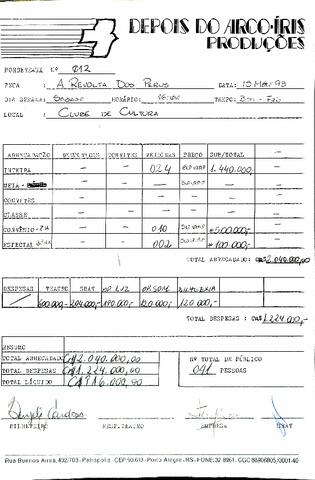 DEPOIS DO ARCO-ÍRIS
PRODUÇÕES
BORDEREAUX Nº 012
PEÇA : A REVOLTA DOS PERUS DATA: 15 MAI 93
DIA SEMANA: SÁBADO HORÁRIO: 16:00 TEMPO: BOM - FRIO
LOCAL : CLUBE DE CULTURA
ARRECADAÇÃO DEVOLVIDOS CONVITES VENDIDOS PREÇO SUB/TOTAL —
INTEIRA — — 024 60.000 1.440.000, —
MEIA — — —
CONVITES — — — — — —
CLASSE — — — — — —
CONVÊNIO — — 010 50.000 500.000, —
ESPECIAL — — 002 50.000 100.000, —
TOTAL ARRECADADO: CR$ 2.040.000,00
DESPESAS TEATRO SBAT OP. LUZ OP. SOM BILHETERIA
600.000,- 204.000,- 120.000,- 120.000,-
TOTAL DESPESAS : CR$ 1.224.000,-
RESUMO
TOTAL ARRECADADO CR$ 2.040.000,00
TOTAL DESPESAS CR$ 1.224.000,00
TOTAL LÍQUIDO CR$ 816.000,00
Nº TOTAL DE PÚBLICO
041 PESSOAS
BILHETEIRO RESP. TEATRO EMPRESA SBAT
Rua Buenos Aires, 402/703 - Petrópolis - CEP 90.610 - Porto Alegre - RS - FONE: 32 8961